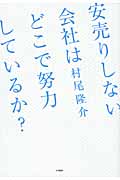 安売りしない
会社は
どこで努力
しているか?
村尾隆介